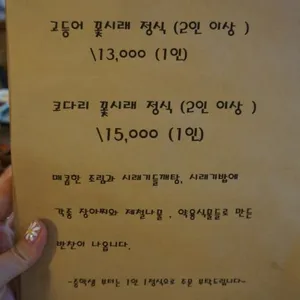 고등어 꽃시래 정식 (2인 이상 )
\13,000 (1인)
코다리 꽃시래 정식 (2인 이상 )
\15,000 (1인)
매콤한 조림과 시래기들깨탕, 시래기밥에
각종 장아찌와 제철나물 , 약용식물들로 만든
반찬이 나옵니다.
-중학생 부터는 1인 1정식으로 주문 부탁드립니다-